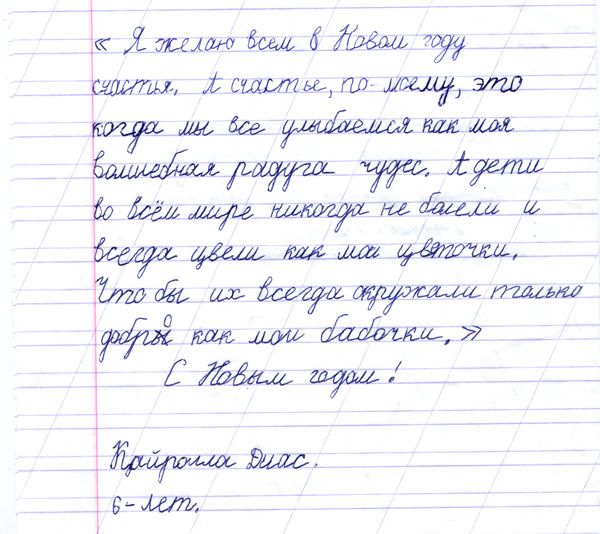 « Я желаю всем в Новом году
счастья. А счастье, по-моему, это
когда мы все улыбаемся как моя
волшебная радуга чудес. А дети
во всём мире никогда не болели и
всегда цвели как мои цвяточки.
Что бы их всегда окружали только
добро как мои бабочки. »
С Новым годом!
Қайролла Диас.
6-лет.